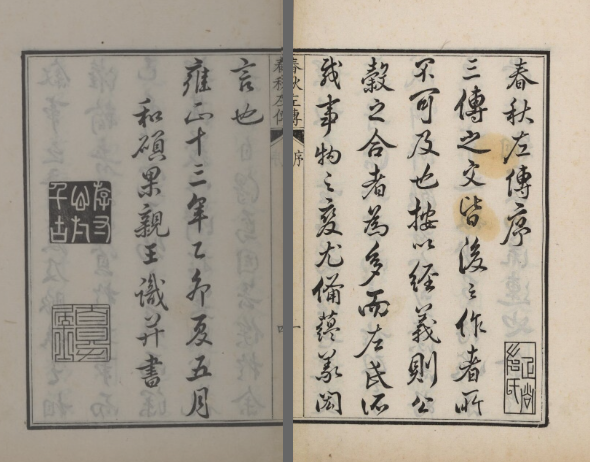 春秋左傳序
三傳之文皆後之作者所
不可及也按以經義則公
穀之合者為多而左氏所
載事物之變尤備蘊義閎
春秋左傳
序
一
春秋左傳
四
言也
雍正十三年乙卯夏五月
和碩果親王識并書